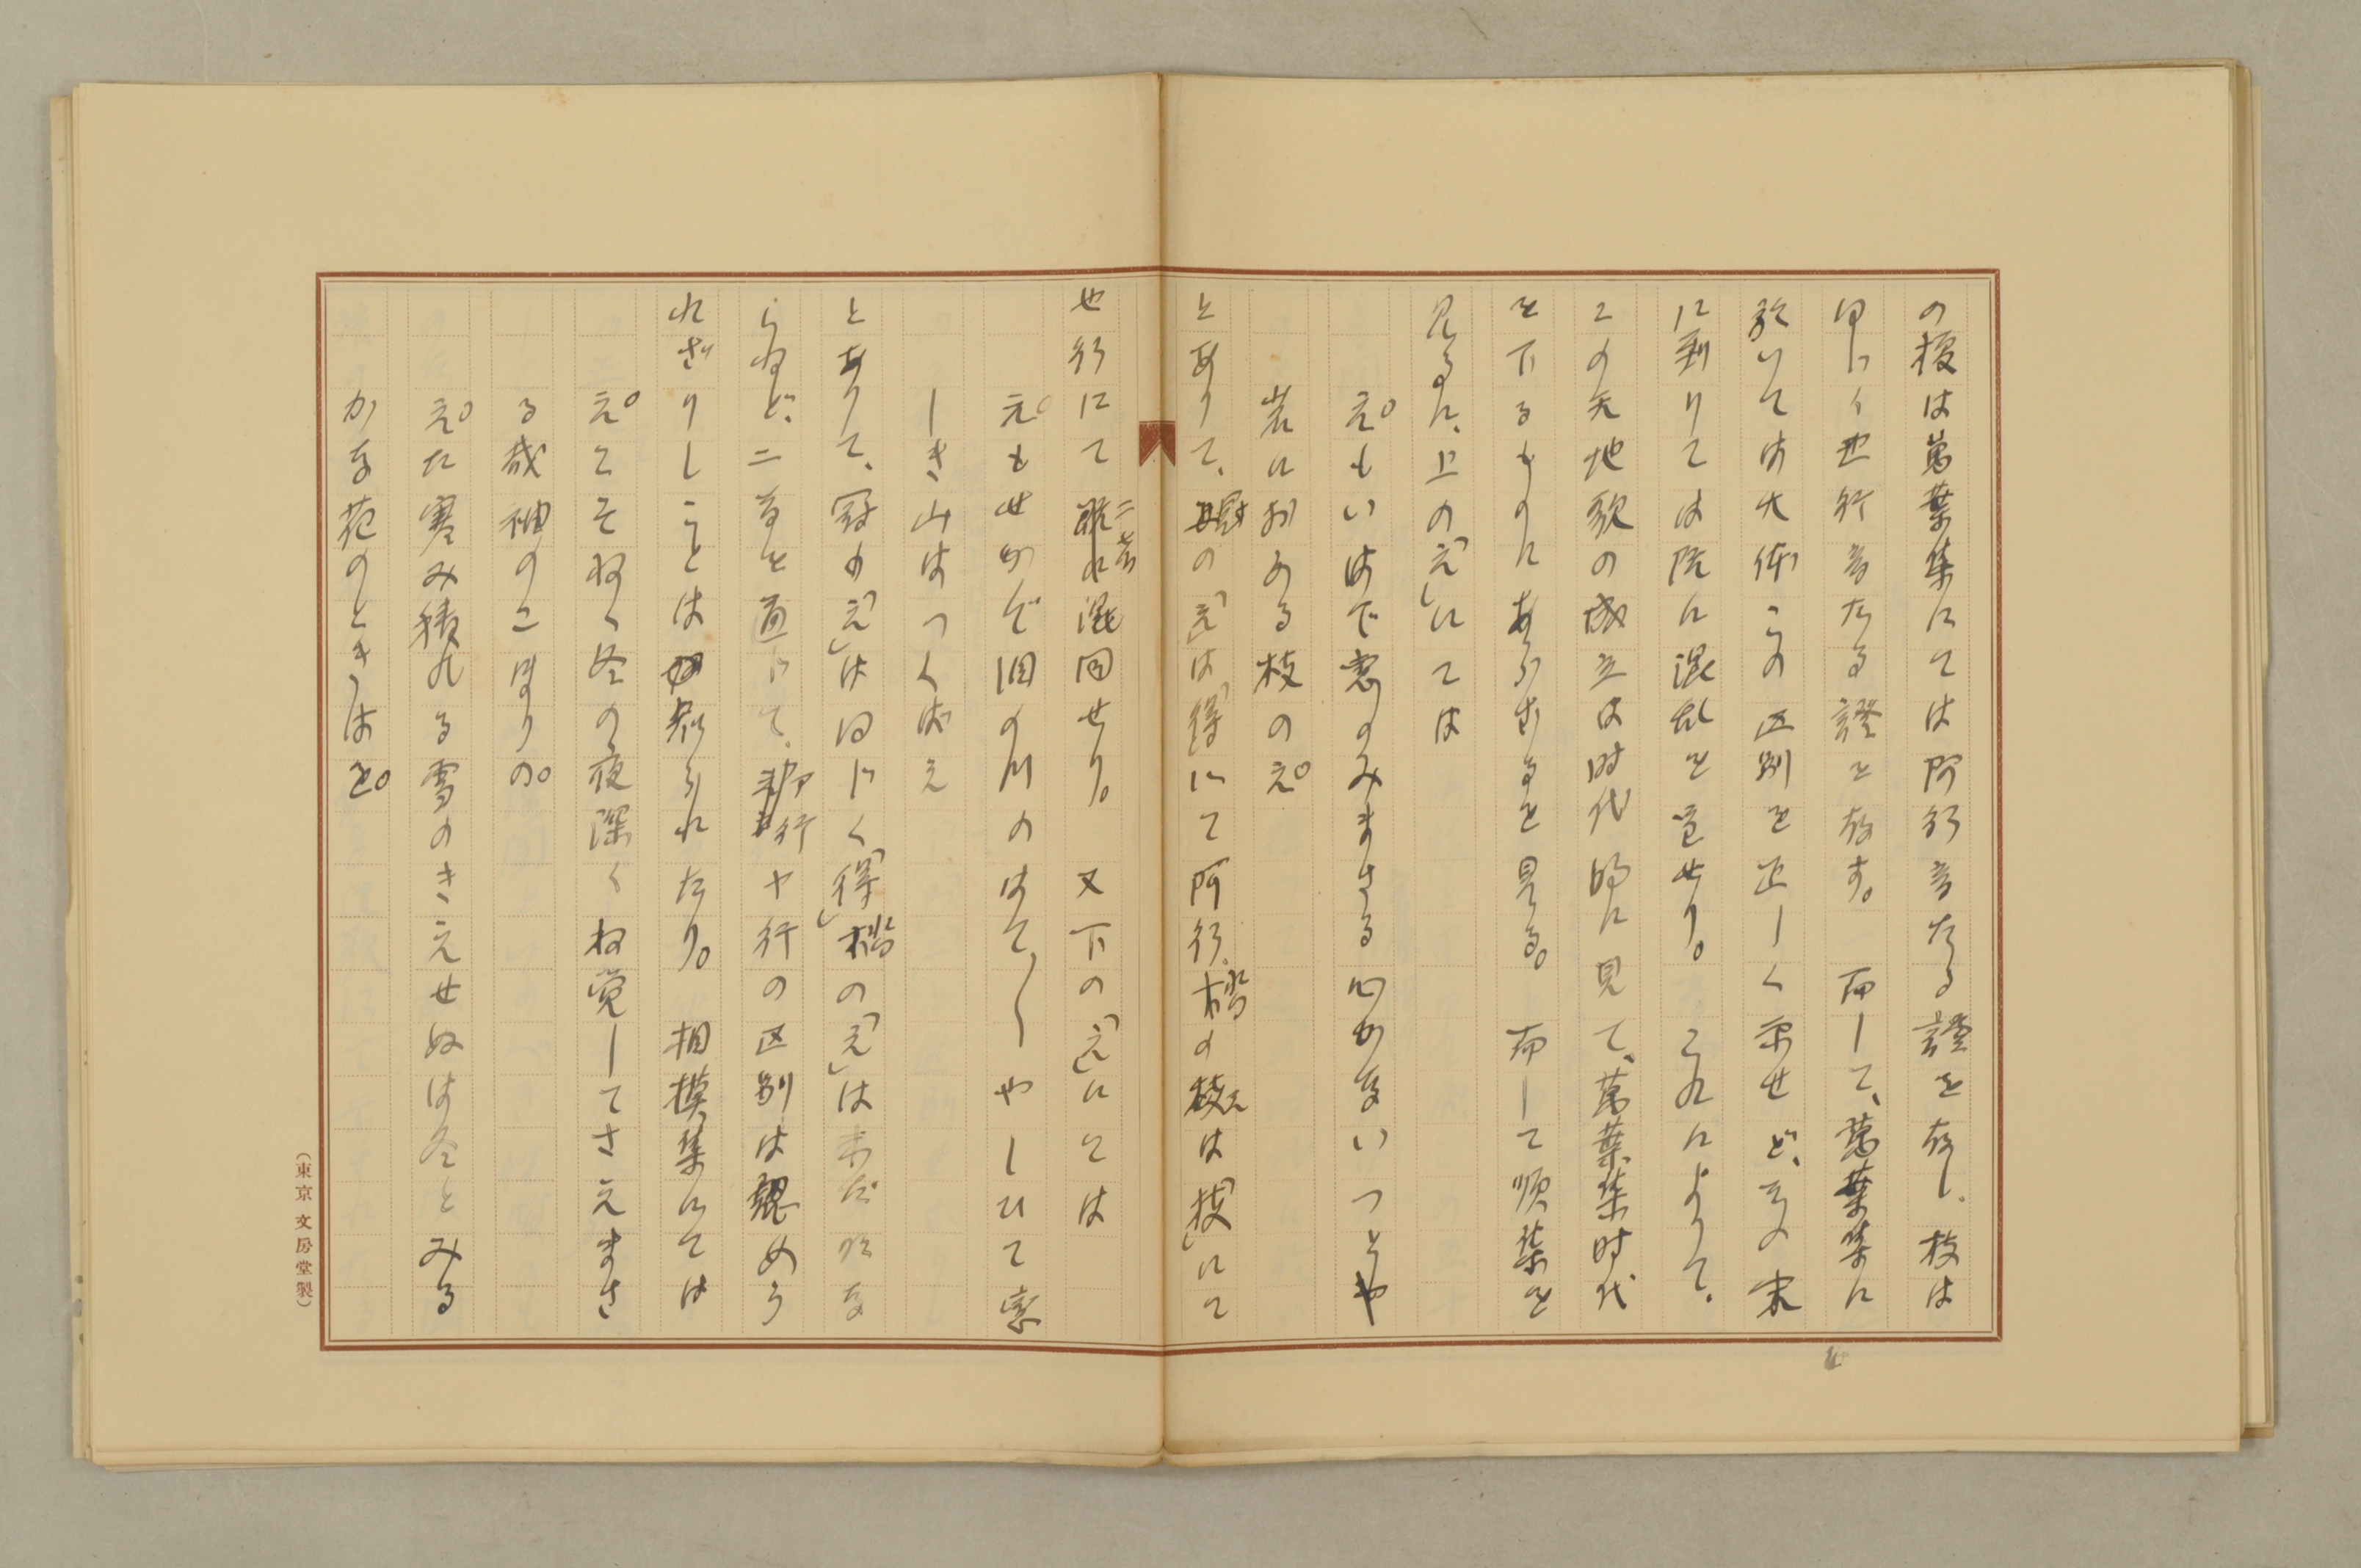 の榎は萬葉集にては阿行音たる證を存し、枝は
同じく也行音たる證を存す。而して、萬葉集に
於いては大体この区別を正しく示せど、その末
に到りては既に混乱を呈せり。これによりて、
この天地歌の成立は時代的に見て、萬葉集時代
を下るものにあらざるを見る。而して順集を
見るに、上の「え」にては
え。もいはで恋のみまさる心かないつとや
岩におふる枝のえ。
とありて、冠の「え」は「得」にて阿行、沓の枝は「枝」にて
也行にて二者混同せり。又下の「え」にては
え。もせかぬ泪の川のはて〳〵やしひて恋
しき山はつくばえ
とありて、冠の「え」は同じく「得」沓の「え」は未だ明な
らねど、二首を通じて、ア行ヤ行の区別は認めら
れざりしことは知られたり。相模集にては
え。こそねね冬の夜深くね覚してさえまさ
る哉袖のこほりの。
え。だ寒み積れる雪のきえせぬは冬とみる
かな花のときはを。
（東京 文房堂製）